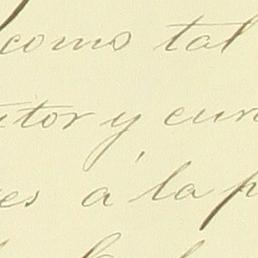 como tal
tutor y cura
es á la p